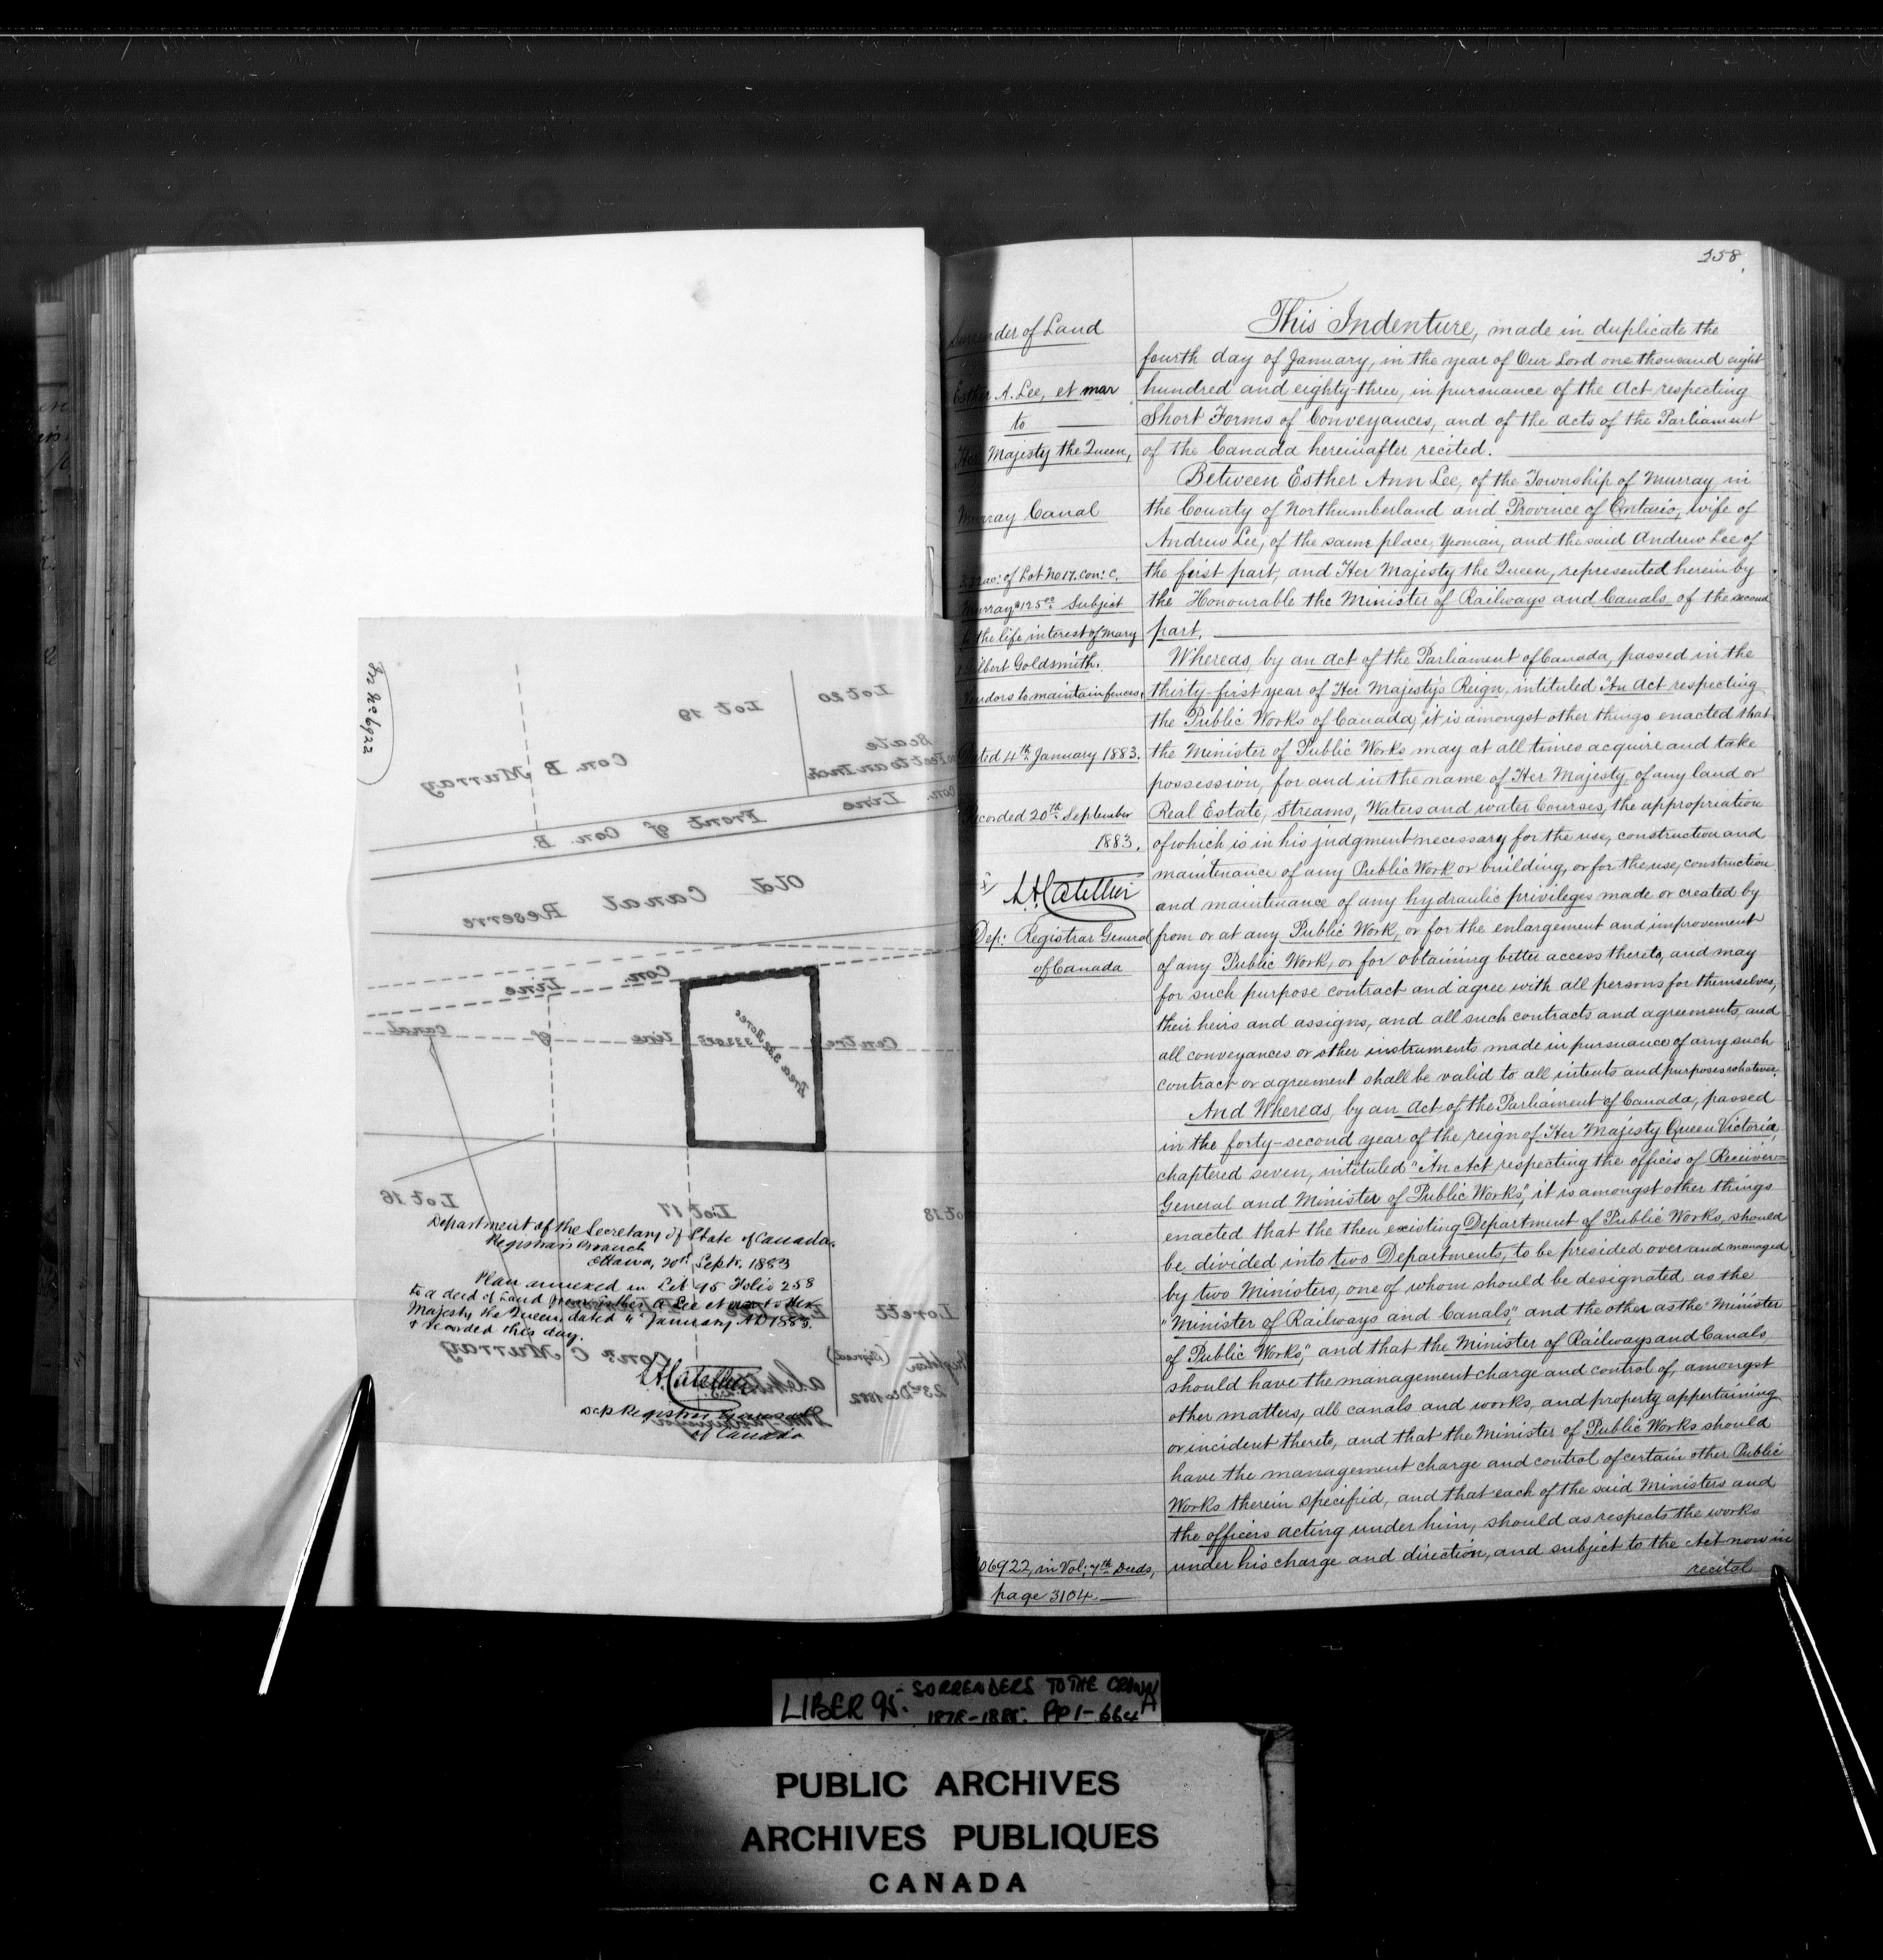 For No 6922
Lot 20
Lot 19
Scale
Feet to an Inch
Con B Murray
Con. Line Front of Con. B.
Old Canal Reserve
Con. Line
Centre line of canal
Area 3.32 Acres
Lot 16
Lot 17
Lot 18
Department of the Secretary of State of Canada.
Registrar's Branch
Ottawa, 20th Septr. 1883
Plan annexed in Lib 95 Folio 258
to a deed of Land from Esther A Lee et mar to Her
Majesty the Queen, dated 4th January AD 1883.
& recorded this day.
Conn C Murray
(Signed)
23rd Dec 1882
L.A. Catellier
Dep Registrar General
of Canada
258.
Surrender of Land
Esther A. Lee, et mar
to
Her Majesty the Queen,
Murray Canal
of Lot No 17. Con: C.
Murray $125.00 Subject
to the life interest of Mary
Gilbert Goldsmith.
Vendors to maintain fences.
Dated 4th January 1883.
Recorded 20th September
1883.
L.A. Catellier
Dep: Registrar General
of Canada
06922, in Vol: 7th Deeds,
page 3104.
This Indenture, made in duplicate the
fourth day of January, in the year of Our Lord one thousand eight
hundred and eighty-three, in pursuance of the Act respecting
Short Forms of Conveyances, and of the Acts of the Parliament
of the Canada hereinafter recited.
Between Esther Ann Lee, of the Township of Murray in
the County of Northumberland and Province of Ontario, wife of
Andrew Lee, of the same place, Yeoman, and the said Andrew Lee of
the first part, and Her Majesty the Queen, represented herein by
the Honourable the Minister of Railways and Canals of the second
part.
Whereas, by an Act of the Parliament of Canada, passed in the
thirty-first year of Her Majesty's Reign, intituled "An Act respecting
the Public Works of Canada," it is amongst other things enacted that
the Minister of Public Works may at all times acquire and take
possession, for and in the name of Her Majesty, of any land or
Real Estate, Streams, Waters and water Courses, the appropriation
of which is in his judgment necessary for the use, construction and
maintenance of any Public Work or building, or for the use, construction
and maintenance of any hydraulic privileges made or created by
from or at any Public Work, or for the enlargement and improvement
of any Public Work, or for obtaining better access thereto, and may
for such purpose contract and agree with all persons for themselves,
their heirs and assigns, and all such contracts and agreements, and
all conveyances or other instruments made in pursuance of any such
contract or agreement shall be valid to all intents and purposes whatever.
And Whereas, by an Act of the Parliament of Canada, passed
in the forty-second year of the reign of Her Majesty Queen Victoria,
chaptered seven, intituled "An Act respecting the offices of Receiver-
General and Minister of Public Works," it is amongst other things
enacted that the then existing Department of Public Works, should
be divided into two Departments, to be presided over and managed
by two Ministers, one of whom should be designated as the
"Minister of Railways and Canals," and the other as the "Minister
of Public Works," and that the Minister of Railways and Canals
should have the management charge and control of, amongst
other matters, all canals and works, and property appertaining
or incident thereto, and that the Minister of Public Works should
have the management charge and control of certain other Public
Works therein specified, and that each of the said Ministers and
the officers acting under him, should as respects the works
under his charge and direction, and subject to the Act now in
recital
LIBER 95. SURRENDERS TO THE CROWN
1878-1885. PP 1-664 A
PUBLIC ARCHIVES
ARCHIVES PUBLIQUES
CANADA